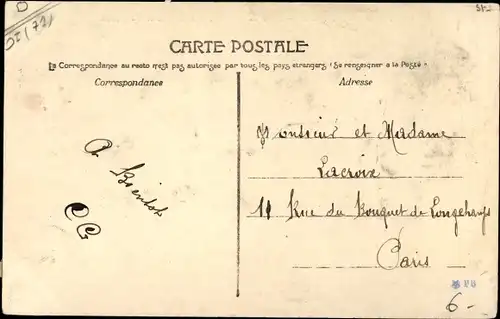 CARTE POSTALE
La Correspondance au recto n'est pas autorisée par tous les pays étrangers (Se renseigner à la Poste)
Correspondance
Adresse
A Bientôt
CG
Monsieur et Madame
Lacroix
11 Rue du Bouquet de Longchamps
Paris
6-